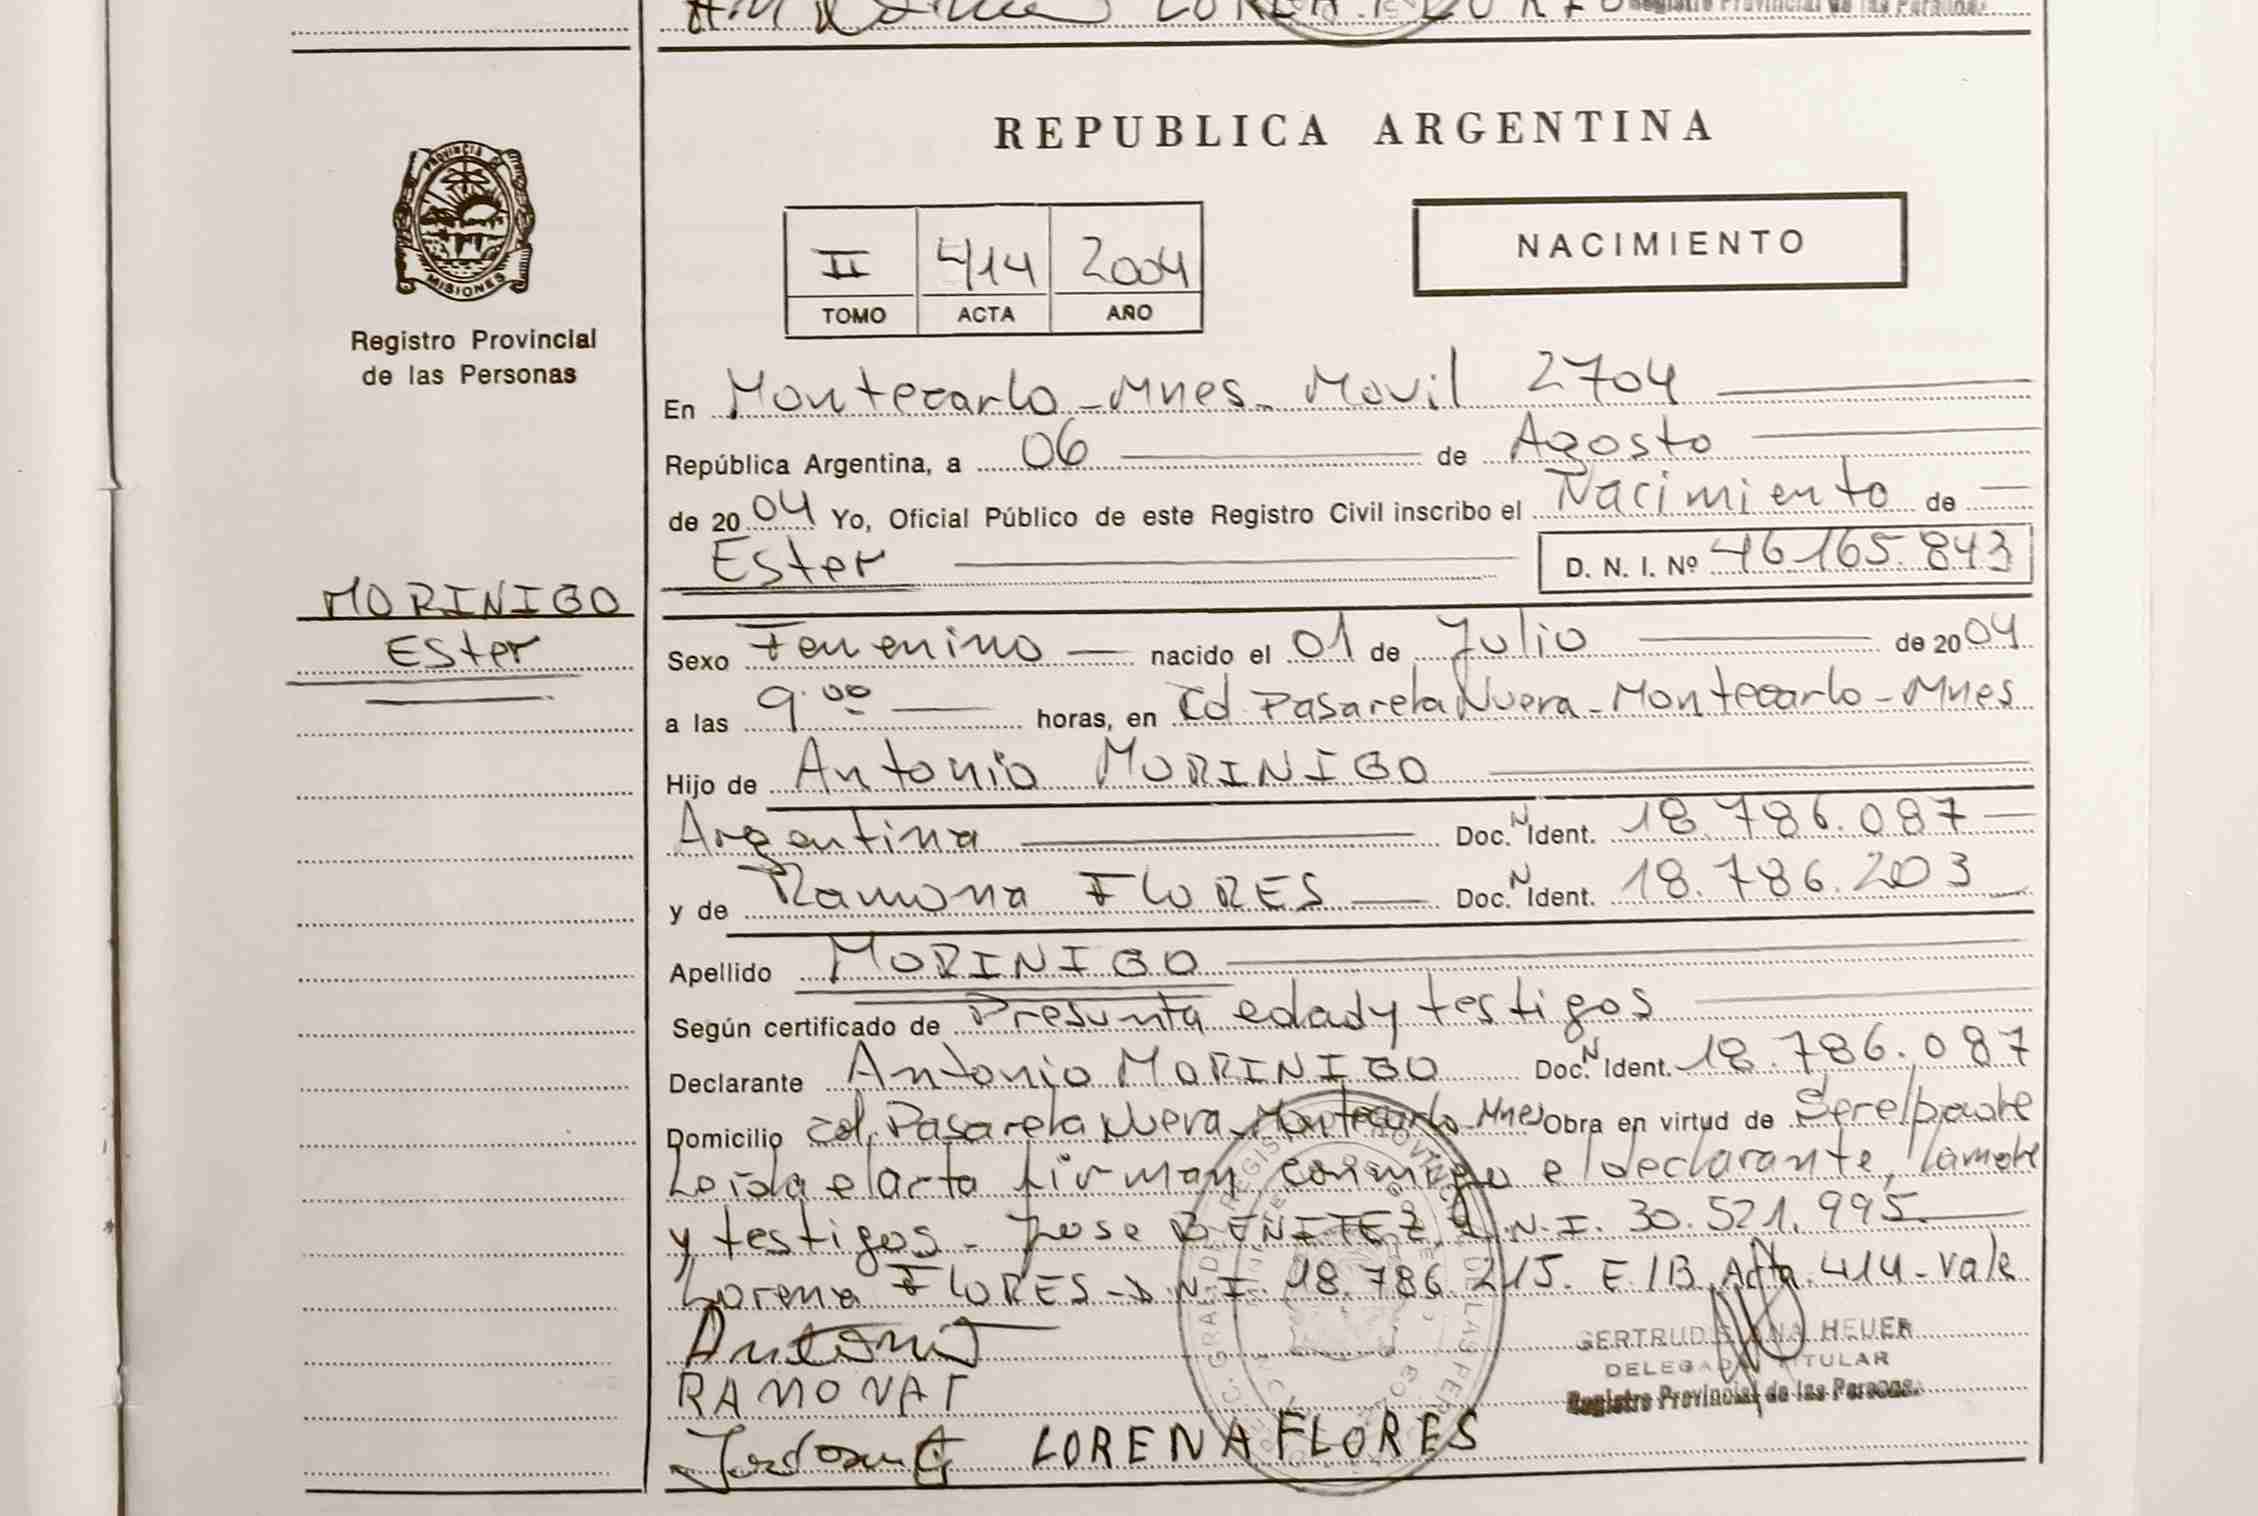 Registro Provincial de las Personas
PROVINCIA DE
MISIONES
Registro Provincial
de las Personas
MORINIGO
Ester
REPUBLICA ARGENTINA
II 414 2004
TOMO ACTA AÑO
NACIMIENTO
En Montecarlo - Mnes - Movil 2704
República Argentina, a 06 de Agosto
de 2004 Yo, Oficial Público de este Registro Civil inscribo el Nacimiento de
Ester D. N. I. Nº 46165.843
Sexo Femenino nacido el 01 de Julio de 2004
a las 9.00 horas, en Col Pasarela Nueva - Montecarlo - Mnes
Hijo de Antonio MORINIGO
Argentina Doc. N Ident. 18.786.087
y de Ramona FLORES Doc. N Ident. 18.786.203
Apellido MORINIGO
Según certificado de Presunta edad y testigos
Declarante Antonio MORINIGO Doc. N Ident. 18.786.087
Domicilio Col. Pasarela Nueva - Montecarlo - Mnes Obra en virtud de Ser el padre
Leida el acta firman conmigo el declarante, la madre
y testigos - Jose BENITEZ D.N.I. 30.521.995
Lorena FLORES - D.N.I. 18.786.215. E/B Acta. 414 - Vale
Antonio
RAMONA F
LORENA FLORES
GERTRUDIS ANA HEUER
DELEGADA TITULAR
Registro Provincial de las Personas